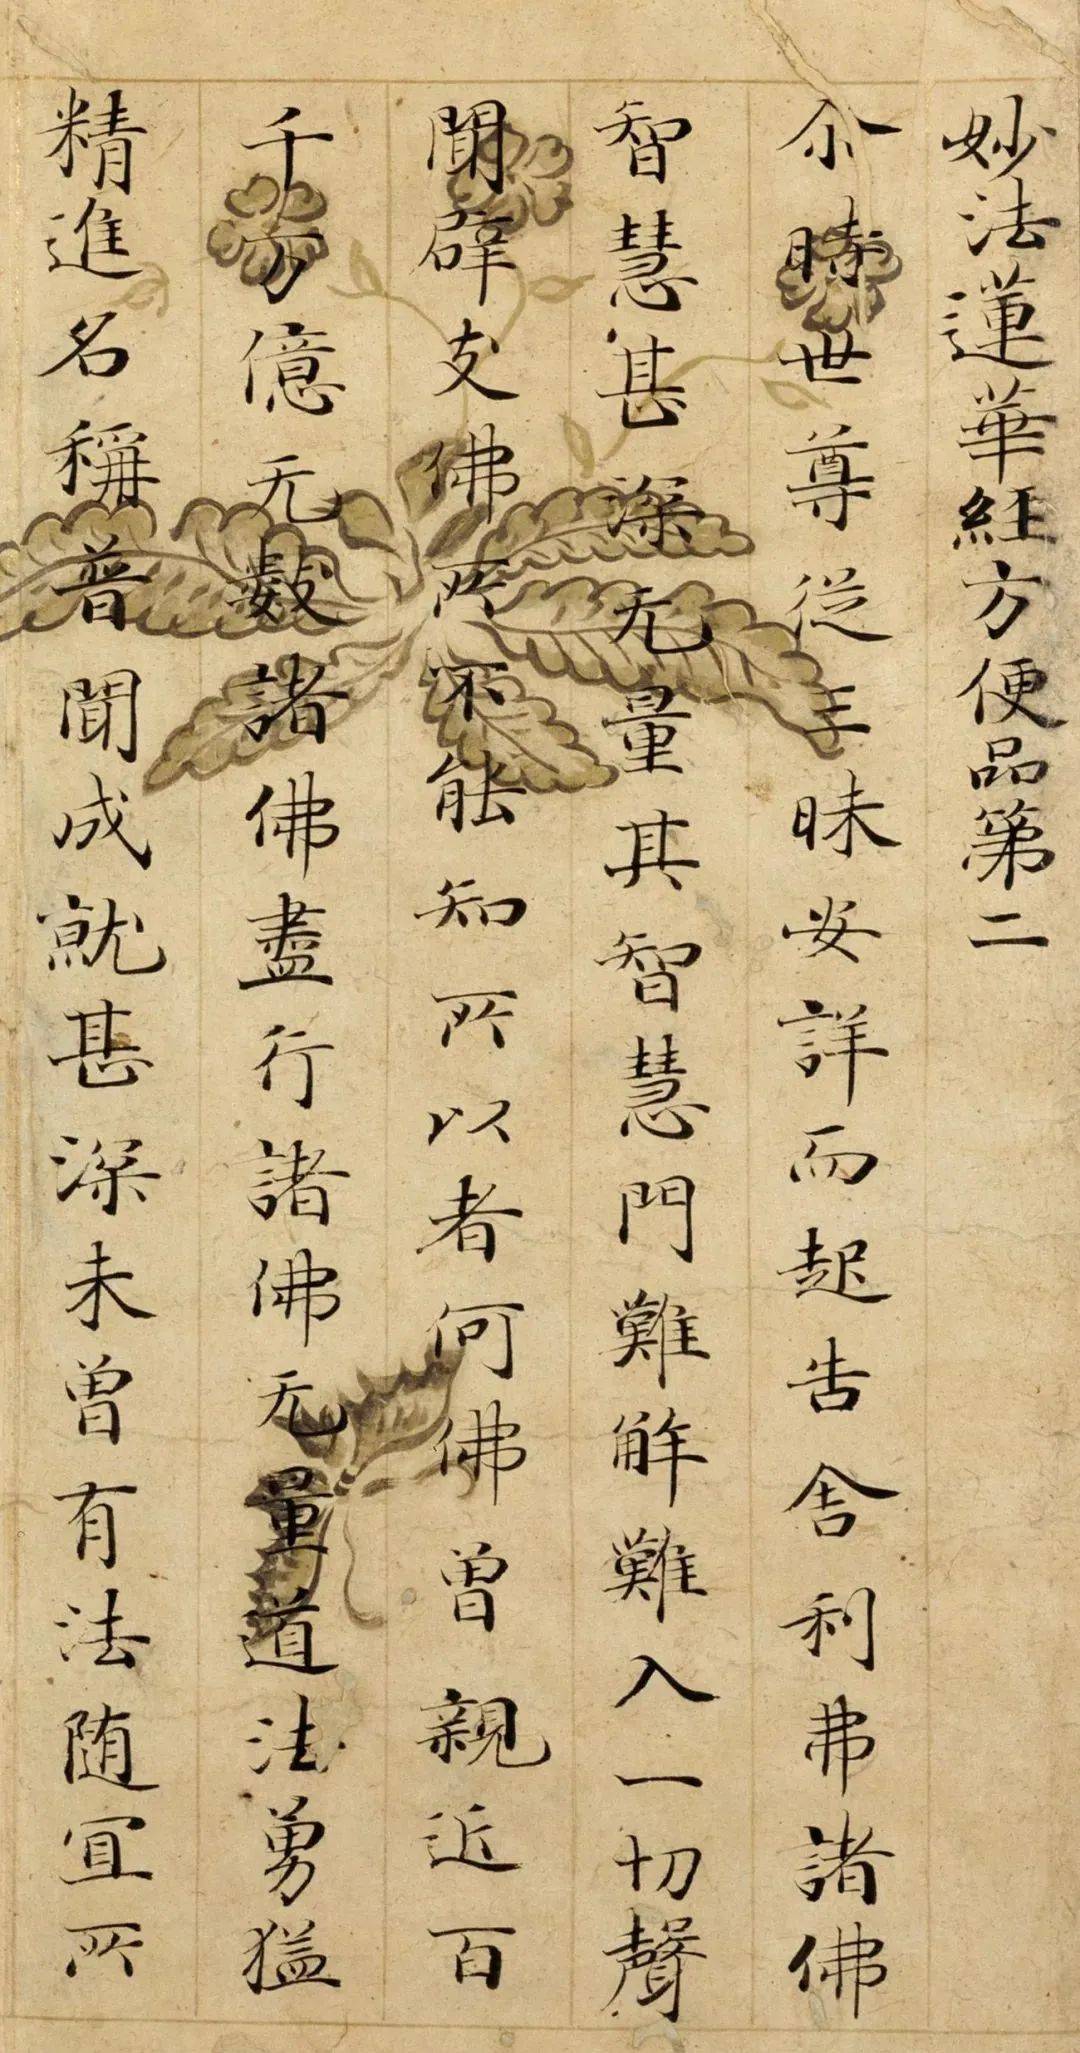 妙法蓮華經方便品第二
尒時世尊從三昧安詳而起告舍利弗諸佛
智慧甚深无量其智慧門難解難入一切聲
聞辟支佛所不能知所以者何佛曾親近百
千万億无數諸佛盡行諸佛无量道法勇猛
精進名稱普聞成就甚深未曾有法随宜所